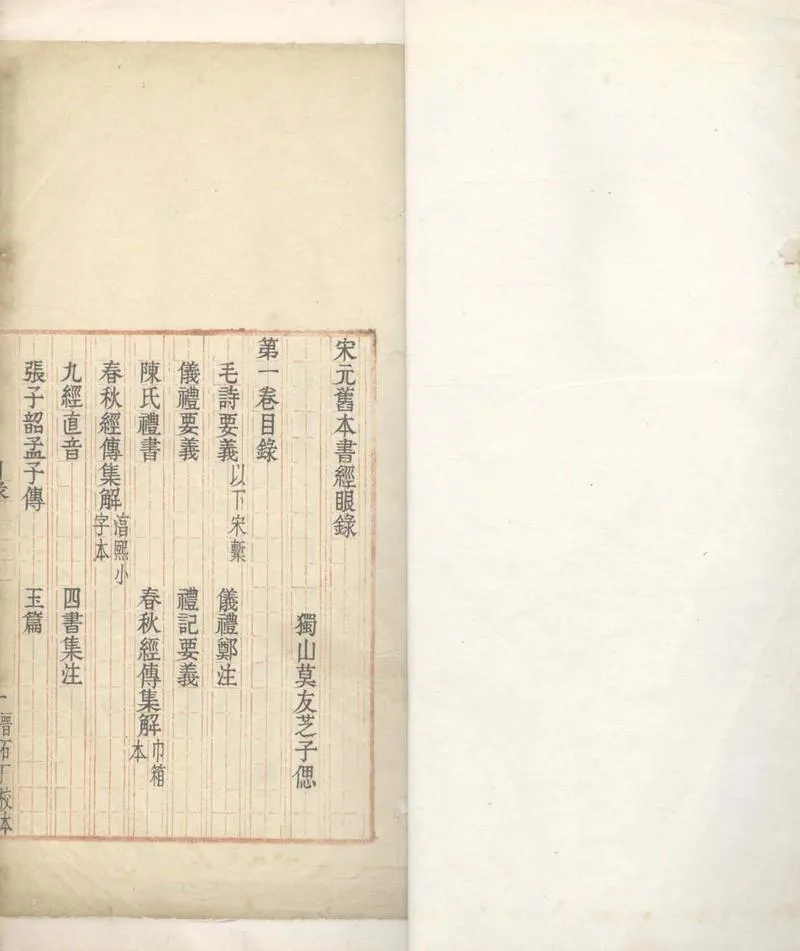 宋元舊本書經眼錄
獨山莫友芝子偲
第一卷目錄
毛詩要義以下宋槧　儀禮鄭注
儀禮要義　禮記要義
陳氏禮書　春秋經傳集解巾箱本
春秋經傳集解淳熙小字本
九經直音　四書集注
張子韶孟子傳　玉篇